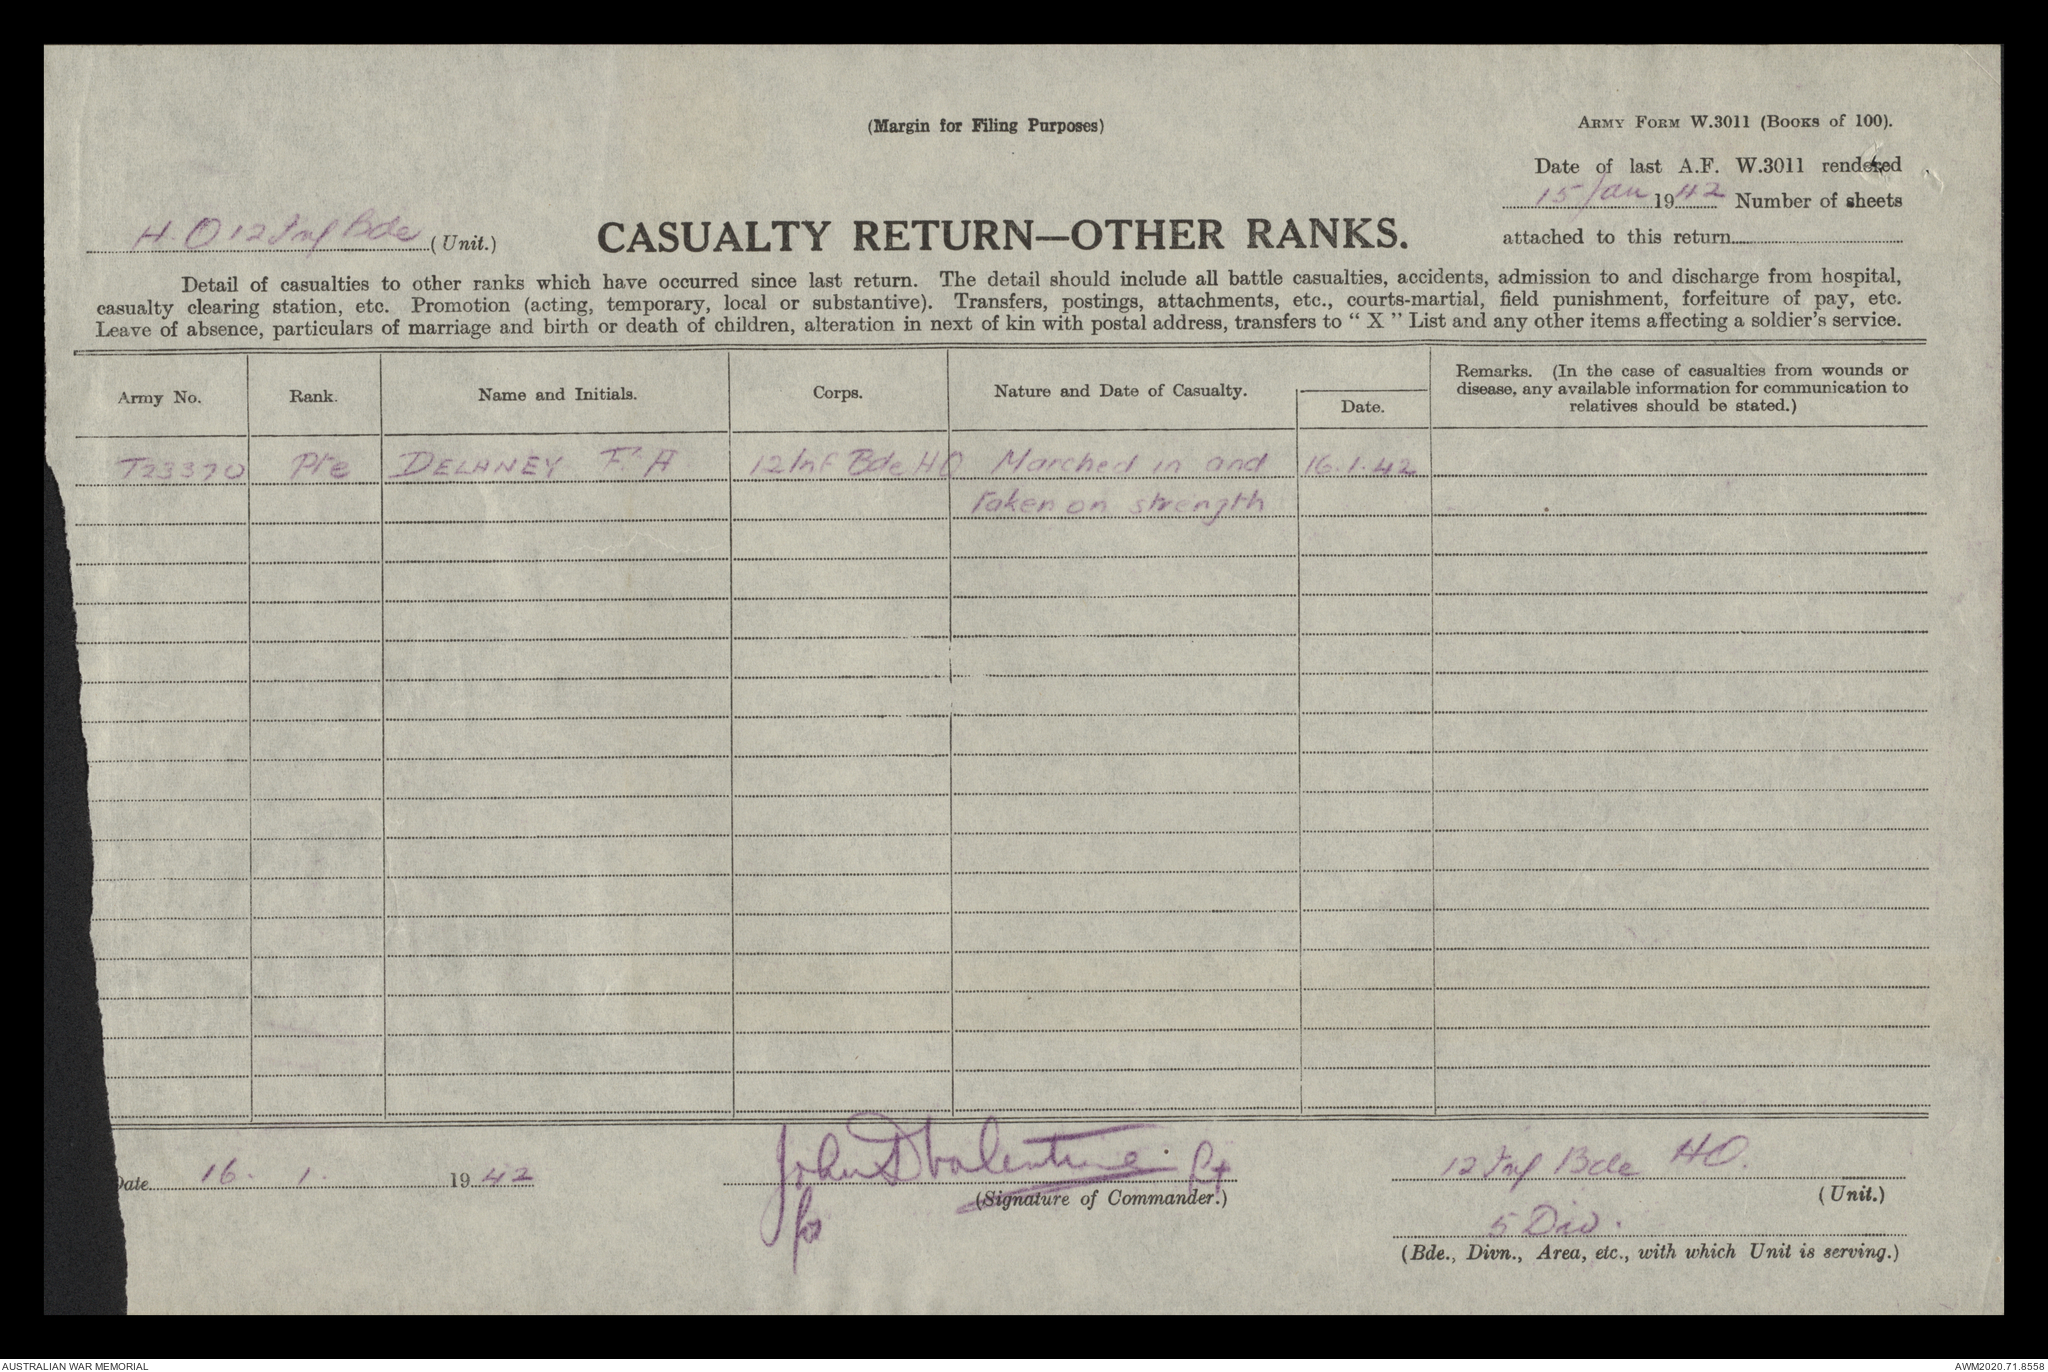 (Margin for Filing Purposes)
ARMY FORM W.3011 (BOOKS of 100).
Date of last A.F. W.3011 rendered
15 Jan 1942 Number of sheets
attached to this return
H.Q 12 Inf Bde (Unit.)
CASUALTY RETURN—OTHER RANKS.
Detail of casualties to other ranks which have occurred since last return. The detail should include all battle casualties, accidents, admission to and discharge from hospital,
casualty clearing station, etc. Promotion (acting, temporary, local or substantive). Transfers, postings, attachments, etc., courts-martial, field punishment, forfeiture of pay, etc.
Leave of absence, particulars of marriage and birth or death of children, alteration in next of kin with postal address, transfers to “ X ” List and any other items affecting a soldier's service.
Army No. Rank. Name and Initials. Corps. Nature and Date of Casualty. Date. Remarks. (In the case of casualties from wounds or
disease, any available information for communication to
relatives should be stated.)
T23370 Pte DELANEY F. A 12 Inf Bde HQ Marched in and 16.1.42
taken on strength
Date 16. 1. 1942
John D Valentine.
for
(Signature of Commander.)
12 Inf Bde HQ.
(Unit.)
5 Div.
(Bde., Divn., Area, etc., with which Unit is serving.)
AUSTRALIAN WAR MEMORIAL
AWM2020.71.8558